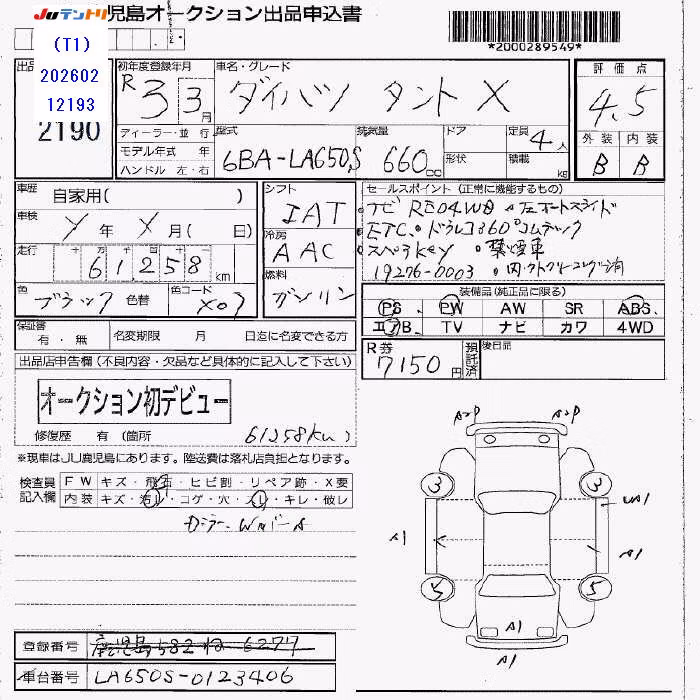 JUテントリ 児島オークション出品申込書
*2000289549*
(T1)
202602
12193
出品
2190
初年度登録年月
R3 3月
車名・グレード
ダイハツ タント X
評価点
4.5
外装 内装
B B
ディーラー・並行
モデル年式 年
ハンドル 左・右
型式
6BA-LA650S
排気量
660 cc
ドア
形状
定員
4人
積載
kg
車歴
自家用( )
車検
Y年 X月( 日)
走行
十 万 千 百 十 一
61,258 km
色
ブラック
色替
色コード
X07
シフト
IAT
冷房
AAC
燃料
ガソリン
セールスポイント (正常に機能するもの)
・ナビ
ETC ・ドラレコ360°
・ 禁煙車
19276-0003
装備品(純正品に限る)
PS PW AW SR ABS
エアB TV ナビ カワ 4WD
保証書
有・無
名変期限 月 日迄に名変できる方
R券
7150円
預託済
後日品
出品店申告欄(不良内容・欠品など具体的に記入して下さい)
オークション初デビュー
修復歴 有(箇所
61258km)
※現車はJU鹿児島にあります。陸送費は落札店負担となります。
検査員
記入欄
FW キズ・飛石・ヒビ割・リペア跡・X要
内装 キズ・汚レ・コゲ・穴・スレ・キレ・破レ
A2P A2P
3 3
A1 UA1
A1
5 5
A1
A1
登録番号 鹿児島582 6277
車台番号 LA650S-0123406